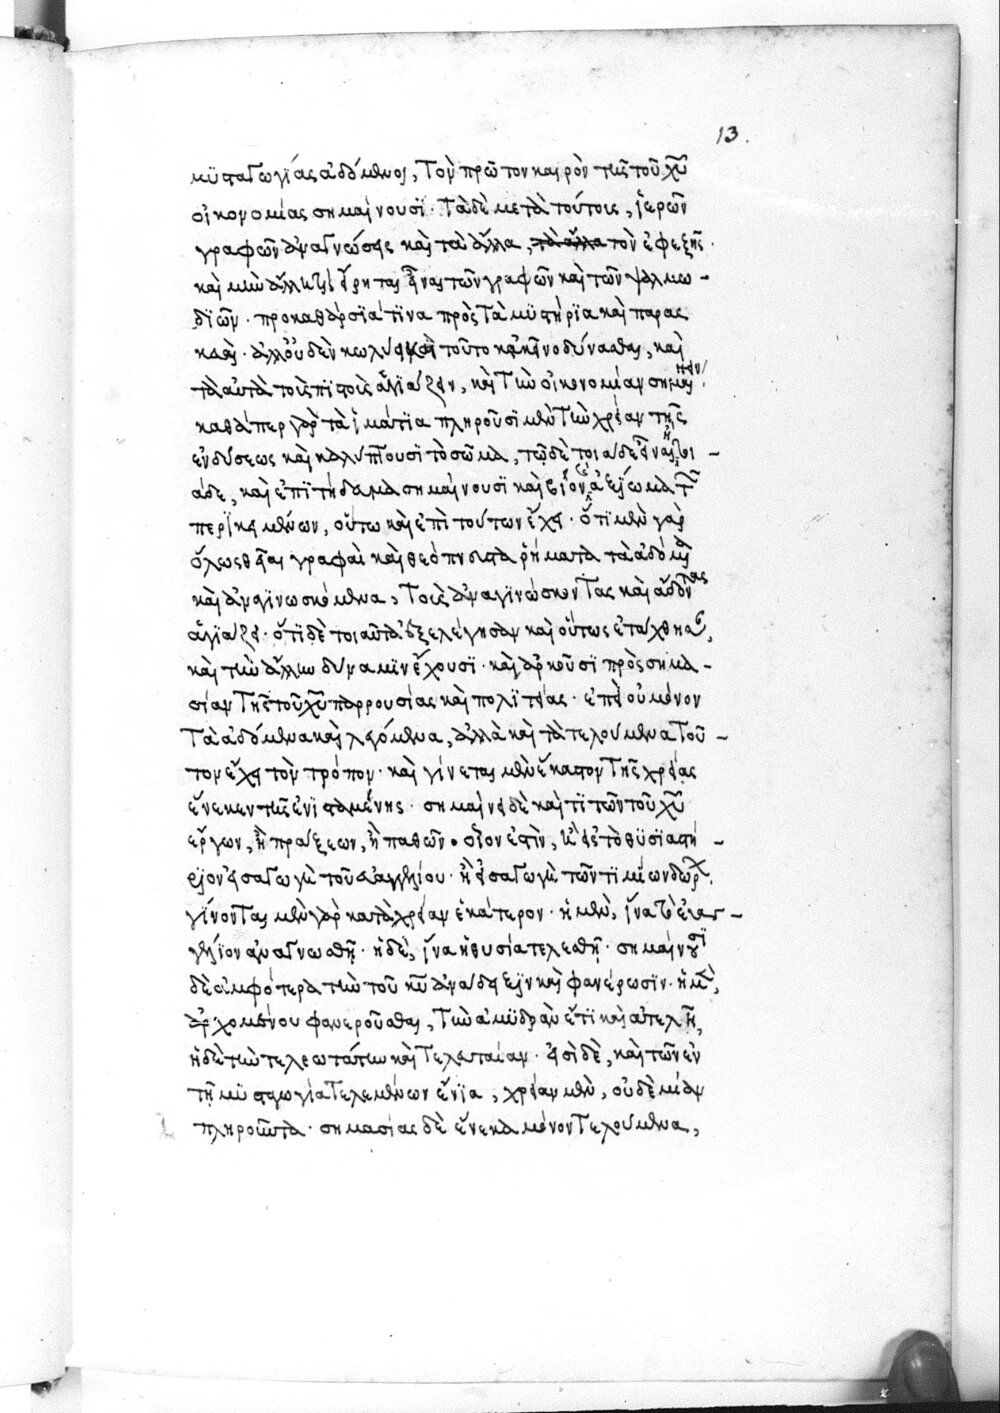 13.
μϋσταγωγίας ἀδόμενοι, τὸν πρῶτον καιρὸν τῆς τοῦ χῦ
οἰκονομίας σημαίνουσι· τὰ δὲ μετὰ τούτοις, ἱερῶν
γραφῶν ἀναγνώσεις καὶ τὰ ἄλλα, τὰ ἄλλα τὸν ἐφεξῆς·
καὶ μὴν ἄλλη τίς εἴρηται εἶναι τῶν γραφῶν καὶ τῶν ψαλμω-
δϊῶν· προκαθάρσϊά τϊνα πρὸς τὰ μϋστήρϊα καὶ παρασ
κευαί· ἀλλ' οὐδὲν κωλύει καὶ τοῦτο κἀκεῖνο δύνασθαι, καὶ
τὰ αὐτὰ τοὺς πϊστοὺς ἁγϊάζειν, καὶ τὴν οἰκονομίαν σημαίνειν·
καθάπερ γὰρ τὰ ἱμάτϊα πληροῦσϊ μὲν τὴν χρείαν τῆς
ἐνδύσεως καὶ καλύπτουσϊ τὸ σῶμα, τῷ δὲ τοιάδε εἶναι ἢ τοι
άδε, καὶ ἐπϊτήδευμα σημαίνουσϊ καὶ βίον καὶ ἀξίωμα τῶν
περϊκειμένων, οὕτω καὶ ἐπὶ τούτων ἔχει· ὅτϊ μὲν γὰρ
ὅλως θεῖαι γραφαὶ καὶ θεόπνευστα ῥήματα τὰ ἀδόμενα
καὶ ἀναγϊνωσκόμενα, τοὺς ἀναγϊνώσκοντας καὶ ἄδοντας
ἁγϊάζει· ὅτϊ δὲ τοιαῦτα ἐξελέγησαν καὶ οὕτως ἐτάχθησαν,
καὶ τὴν ἄλλην δύναμϊν ἔχουσϊ· καὶ ἀρκοῦσϊ πρὸς σημα-
σίαν τῆς τοῦ χῦ παρρουσίας καὶ πολϊτείας· ἐπεὶ οὐ μόνον
τὰ ἀδόμενα καὶ λεγόμενα, ἀλλὰ καὶ τὰ τελούμενα τοῦ-
τον ἔχει τὸν τρόπον· καὶ γίνεται μὲν ἕκαστον τῆς χρείας
ἕνεκεν τῆς ἐνϊσταμένης· σημαίνει δὲ καὶ τϊ τῶν τοῦ χῦ
ἔργων, ἢ πράξεων, ἢ παθῶν· οἷον ἐστὶν, ἡ εἰς τὸ θϋσϊαστή-
ρϊον εἰσαγωγὴ τοῦ εὐαγγελίου· ἢ εἰσαγωγὴ τῶν τϊμίων δώρων·
γίνονται μὲν γὰρ κατὰ χρείαν ἑκάτερον· ἡ μὲν, ἵνα τὸ εὐαγ-
γέλϊον ἀναγνωσθῇ· ἡ δὲ, ἵνα ἡ θυσία τελεσθῇ· σημαίνουσϊ
δὲ ἀμφότερα τὴν τοῦ κῦ ἀνάδειξϊν καὶ φανέρωσϊν· ἡ μὲν,
ἀρχομένου φανεροῦσθαι, τὴν ἀμϋδρὰν ἔτϊ καὶ ἀτελῆ,
ἡ δὲ τὴν τελεωτάτην καὶ τελευταίαν· εἰσὶ δὲ, καὶ τῶν ἐν
τῇ μϋσταγωγία τελεμένων ἔνϊα, χρείαν μὲν, οὐδεμίαν
πληροῦντα· σημασίας δὲ ἕνεκα μόνον τελούμενα,